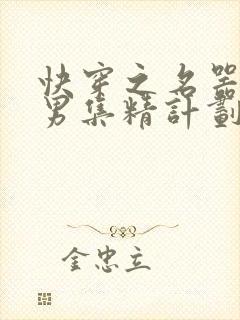 快穿之名器
男集精計劃
金忠立